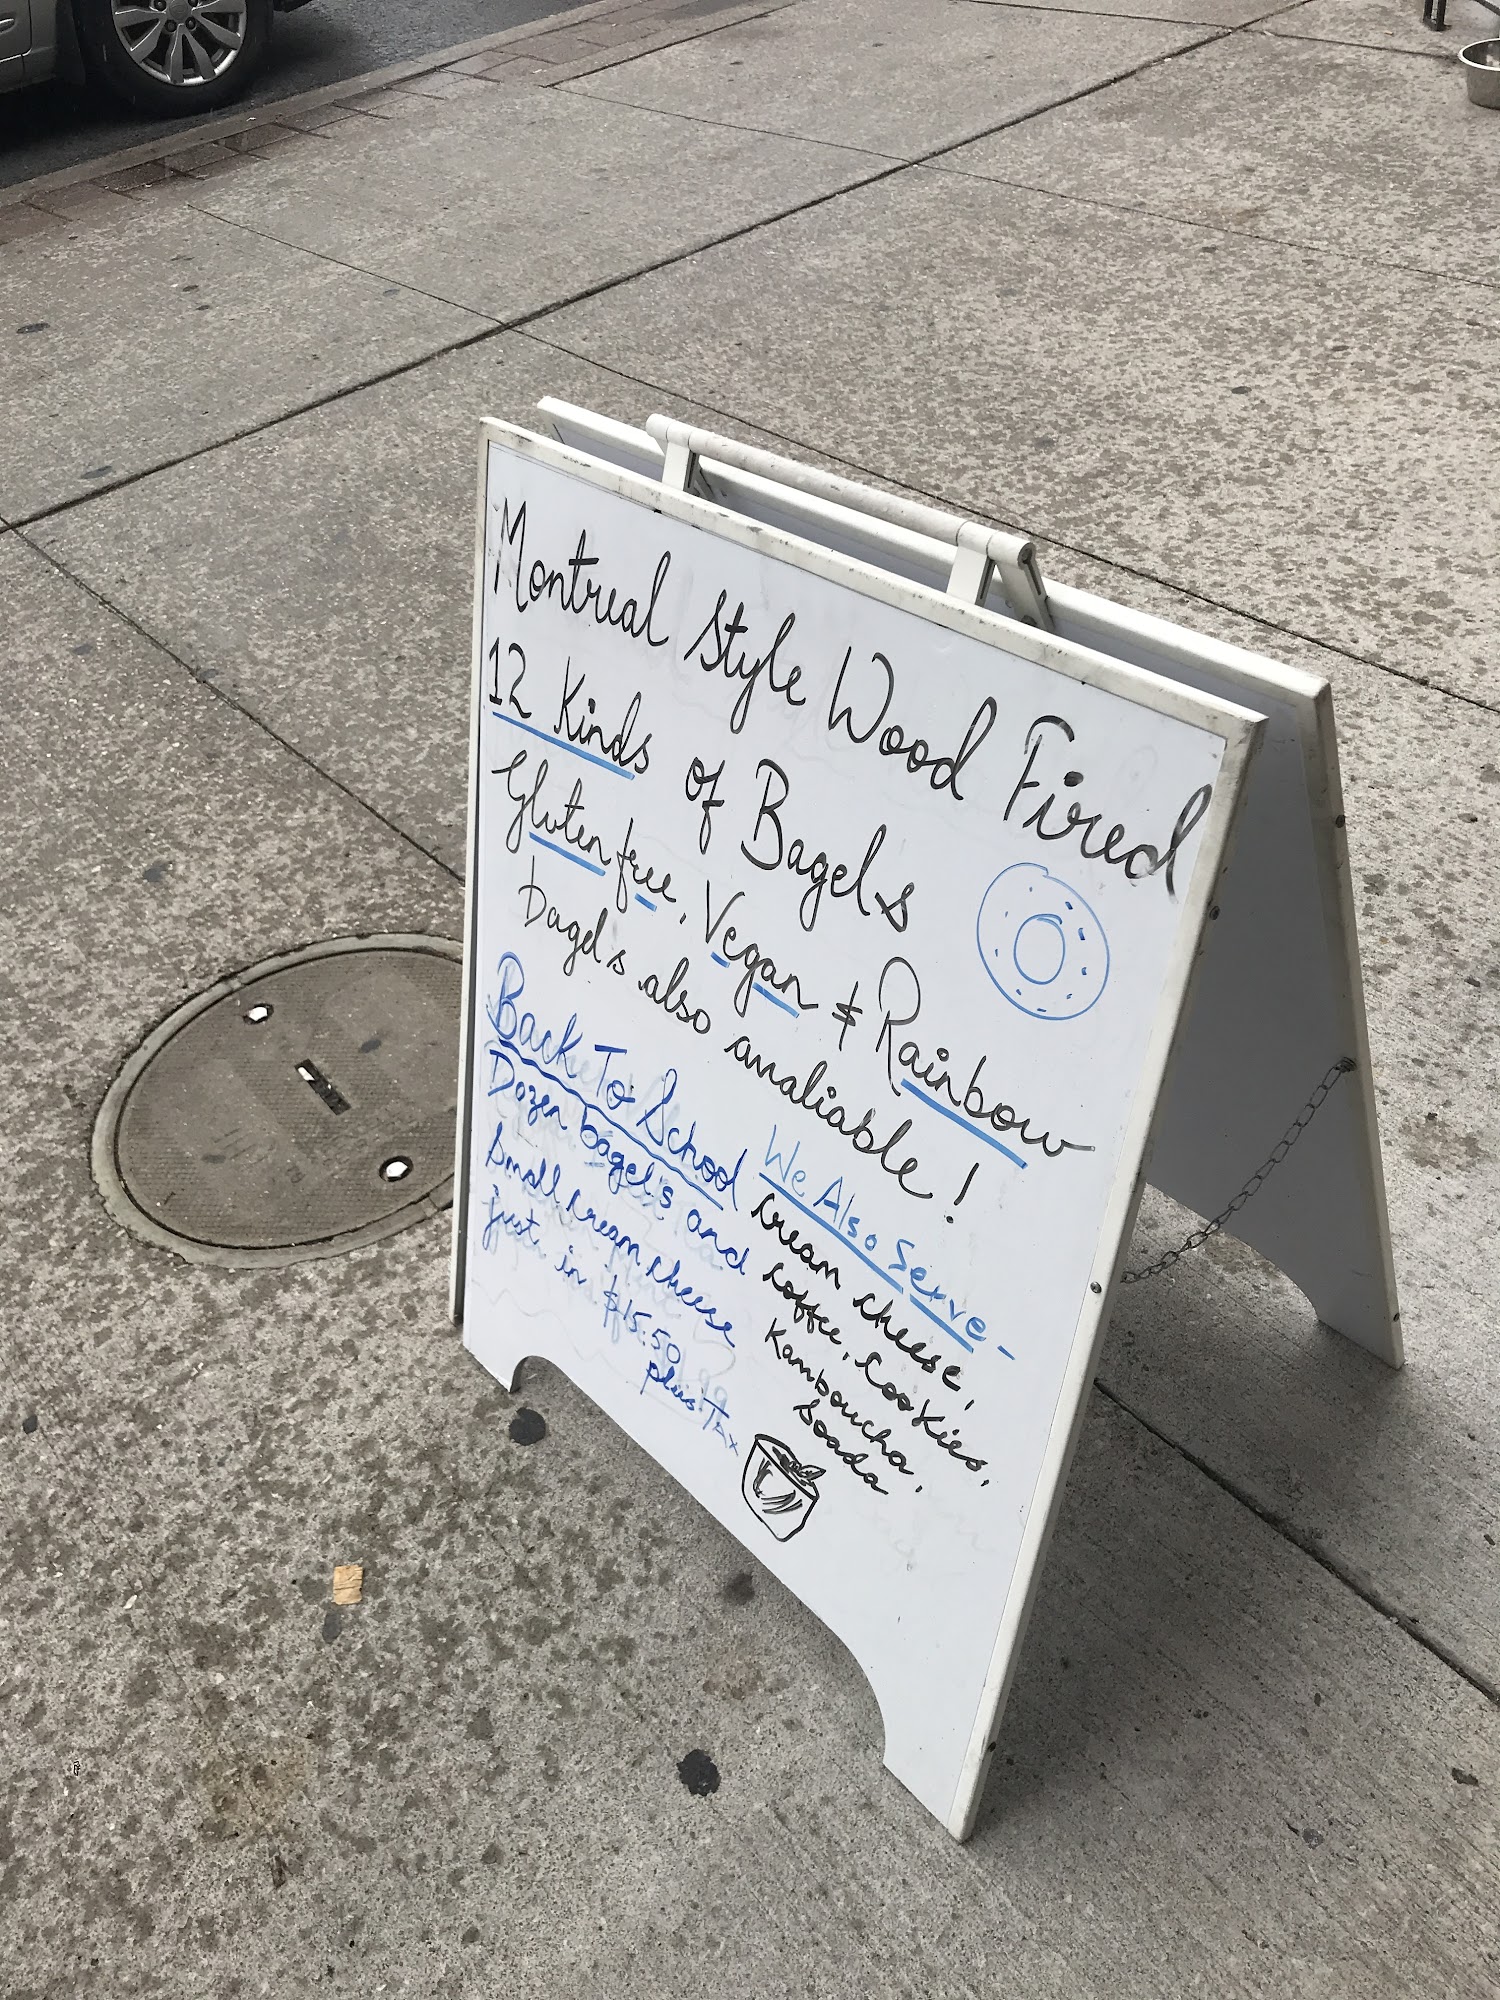 Montreal Style Wood Fired
12 Kinds of Bagel's
Gluten free, Vegan & Rainbow
bagel's also amaliable!
Back To School
Dozen bagel's and
Small cream cheese
just in $15:50
plus TAx
We Also Serve -
cream cheese,
coffee, cookies,
Kamboucha,
Soada